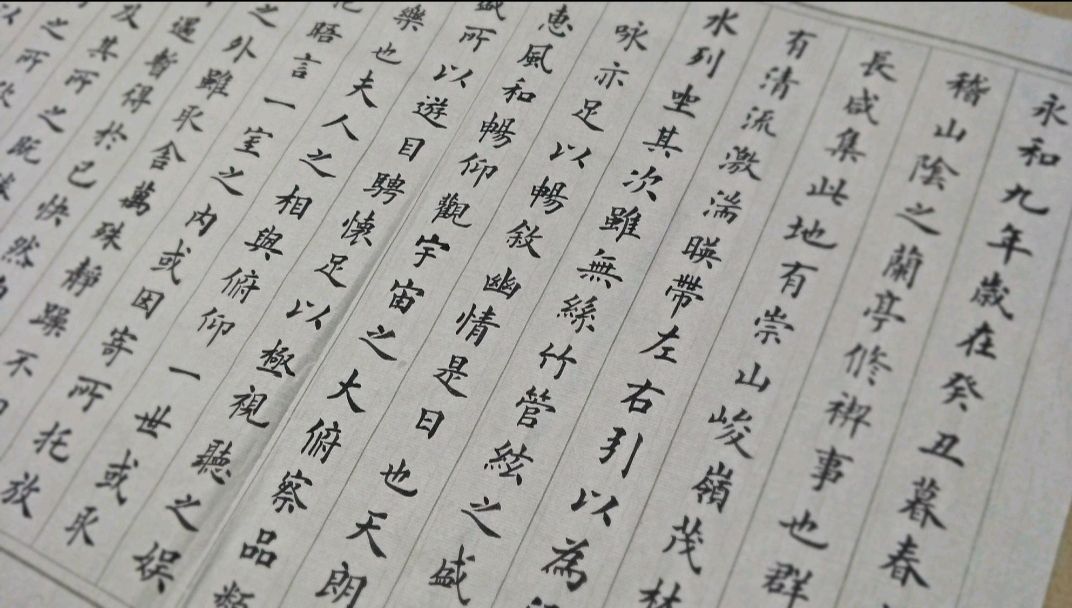 永和九年歲在癸丑暮春
稽山陰之蘭亭修禊事也群
長咸集此地有崇山峻嶺茂林
有清流激湍暎帶左右引以為
水列坐其次雖無絲竹管絃之盛
咏亦足以暢敘幽情是日也天朗
惠風和暢仰觀宇宙之大俯察品類
盛所以遊目騁懷足以極視聽之娛
樂也夫人之相與俯仰一世或取
晤言一室之內或因寄所托放
之外雖取舍萬殊靜躁不同
遇暫得於己快然自
及其所之既
之所欣
以